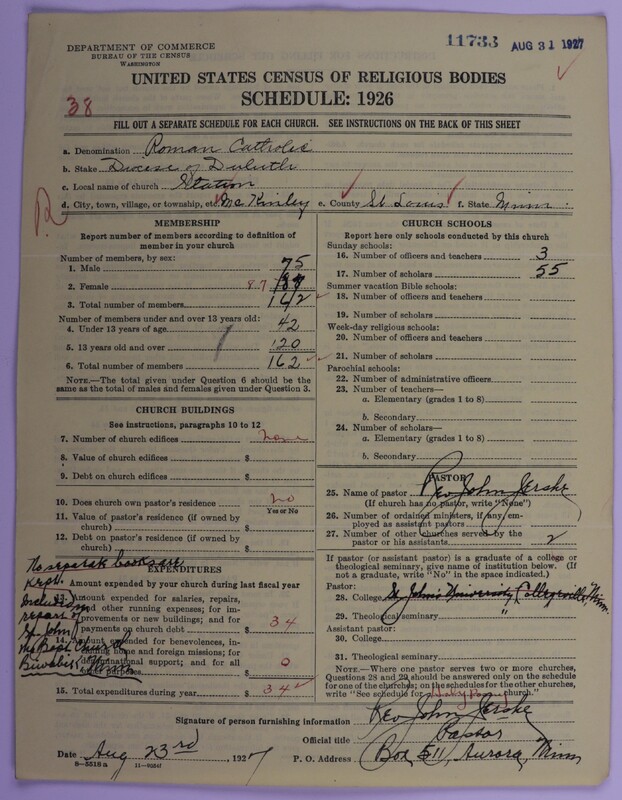 DEPARTMENT OF COMMERCE
BUREAU OF THE CENSUS
WASHINGTON
11733 AUG 31 1927
UNITED STATES CENSUS OF RELIGIOUS BODIES
SCHEDULE: 1926
38
FILL OUT A SEPARATE SCHEDULE FOR EACH CHURCH. SEE INSTRUCTIONS ON THE BACK OF THIS SHEET
a. Denomination Roman Catholic
b. Stake Diocese of Duluth
c. Local name of church Station
d. City, town, village, or township, etc. McKinley e. County St. Louis f. State Minn.
R
MEMBERSHIP
Report number of members according to definition of member in your church
Number of members, by sex:
1. Male 75
2. Female 87
3. Total number of members 162
Number of members under and over 13 years old:
4. Under 13 years of age 42
5. 13 years old and over 120
6. Total number of members 162
NOTE.—The total given under Question 6 should be the same as the total of males and females given under Question 3.
CHURCH BUILDINGS
See instructions, paragraphs 10 to 12
7. Number of church edifices none
8. Value of church edifices $
9. Debt on church edifices $
10. Does church own pastor's residence no
Yes or No
11. Value of pastor's residence (if owned by church) $
12. Debt on pastor's residence (if owned by church) $
EXPENDITURES
Amount expended by your church during last fiscal year
13. Amount expended for salaries, repairs, and other running expenses; for improvements or new buildings; and for payments on church debt $ 34
14. Amount expended for benevolences, including home and foreign missions; for denominational support; and for all other purposes $ 0
15. Total expenditures during year $ 34
No separate books are kept. Included in report of St. John the Bapt. Church Biwabik Minn
CHURCH SCHOOLS
Report here only schools conducted by this church
Sunday schools:
16. Number of officers and teachers 3
17. Number of scholars 55
Summer vacation Bible schools:
18. Number of officers and teachers
19. Number of scholars
Week-day religious schools:
20. Number of officers and teachers
21. Number of scholars
Parochial schools:
22. Number of administrative officers
23. Number of teachers—
a. Elementary (grades 1 to 8)
b. Secondary
24. Number of scholars—
a. Elementary (grades 1 to 8)
b. Secondary
PASTOR
25. Name of pastor Rev John Jershe
(If church has no pastor, write "None")
26. Number of ordained ministers, if any, employed as assistant pastors
27. Number of other churches served by the pastor or his assistants 2
If pastor (or assistant pastor) is a graduate of a college or theological seminary, give name of institution below. (If not a graduate, write "No" in the space indicated.)
Pastor:
28. College St. John's University, Collegeville, Minn.
29. Theological seminary "
Assistant pastor:
30. College
31. Theological seminary
NOTE.—Where one pastor serves two or more churches, Questions 28 and 29 should be answered only on the schedule for one of the churches; on the schedules for the other churches, write "See schedule for Holy Rosary church."
Signature of person furnishing information Rev John Jershe
Official title Pastor
Date Aug 23rd, 1927 P. O. Address Box 511, Aurora, Minn
8—5518 a 11—9054f